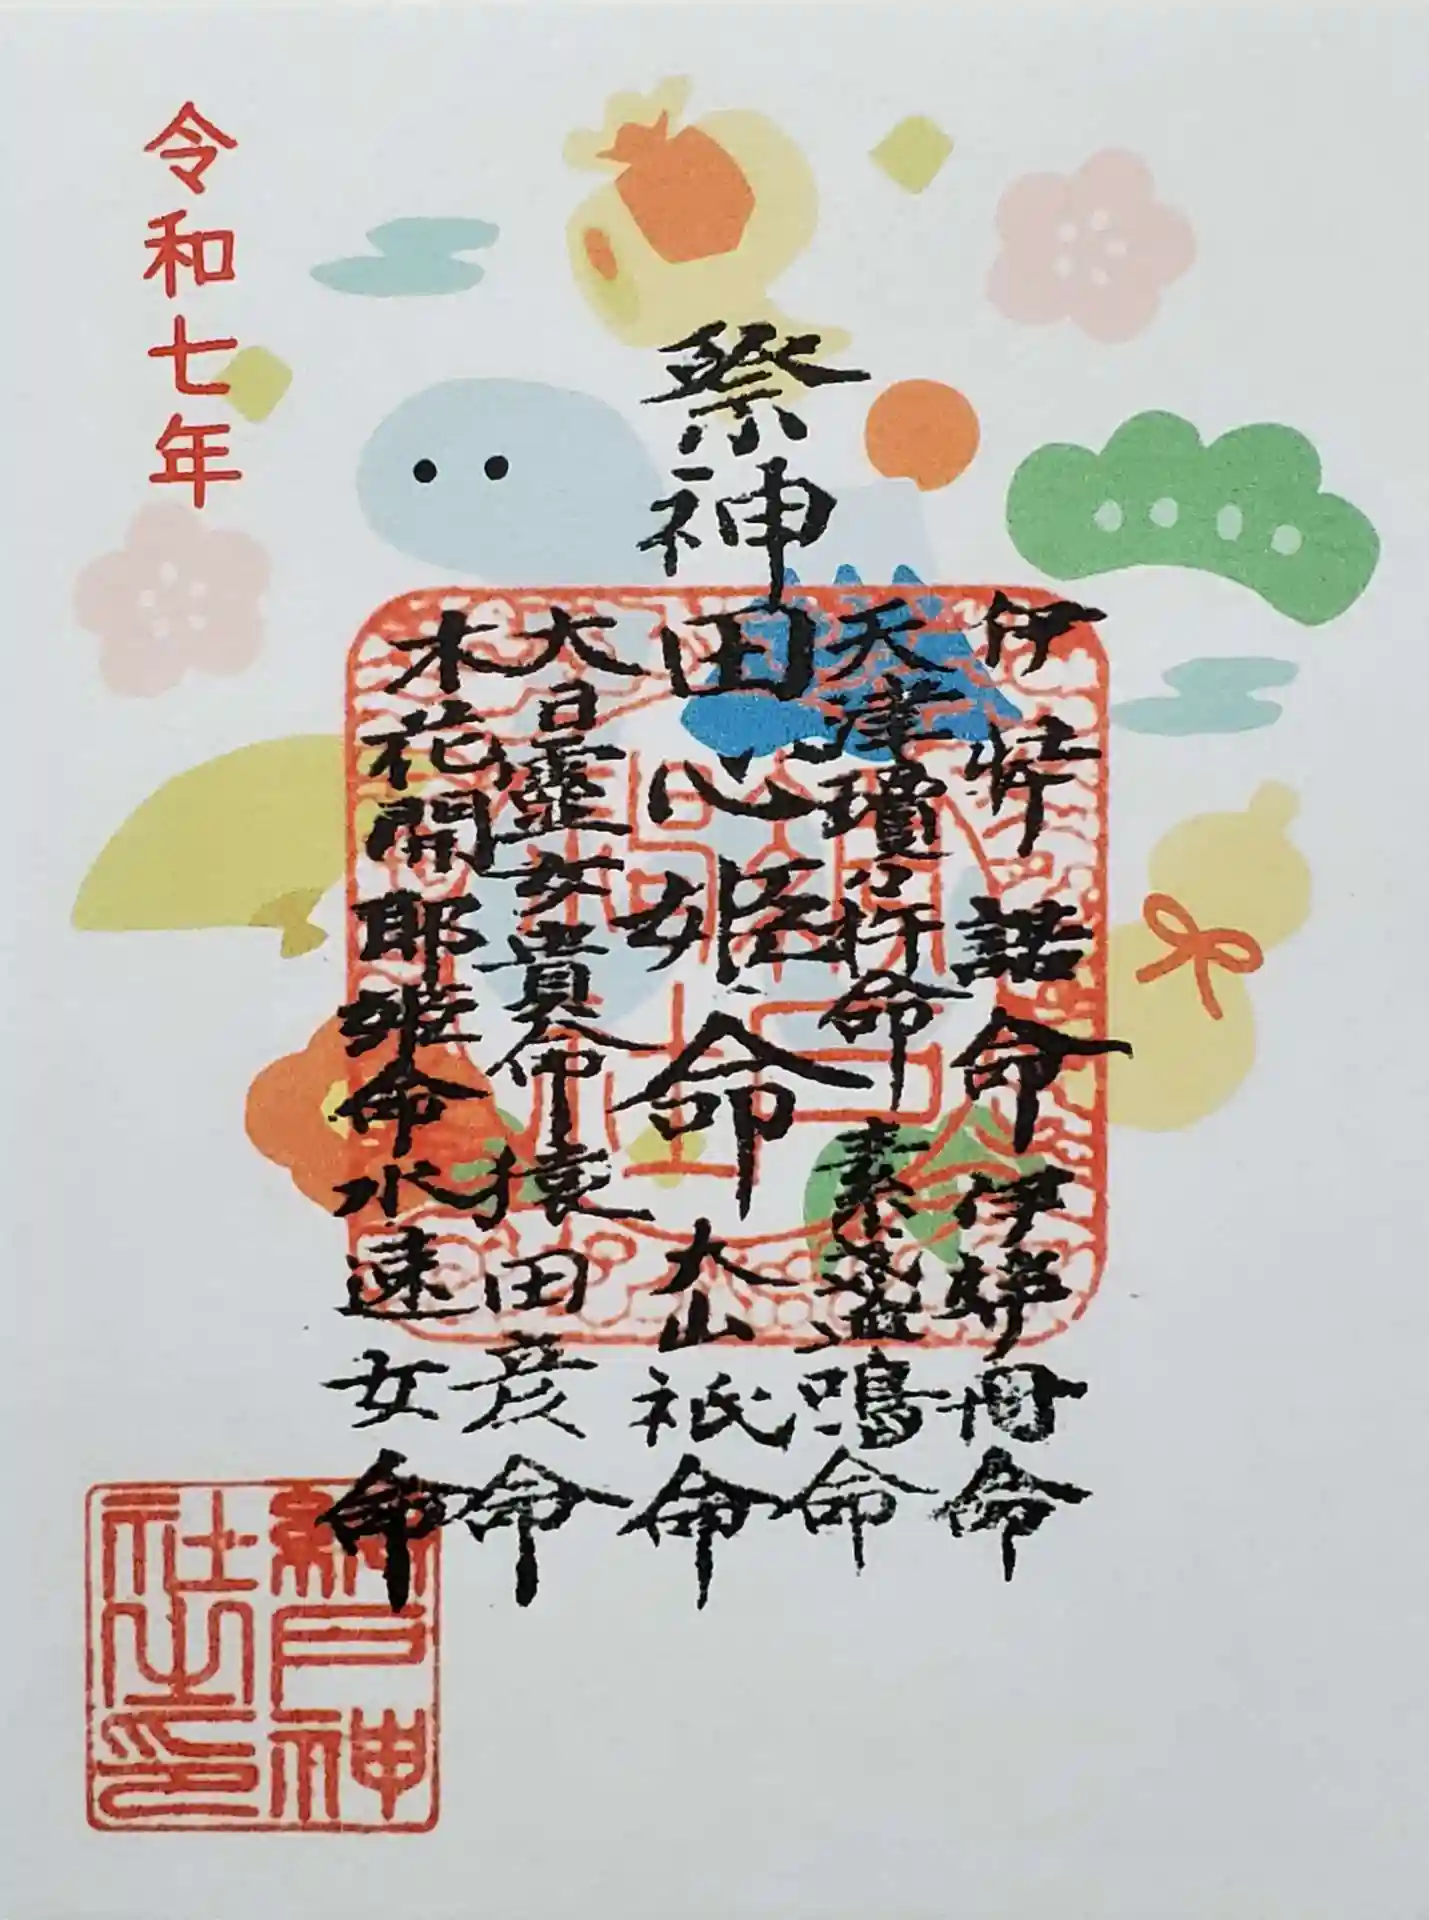 令和七年
祭神
伊弉諾命 伊弉冊命
天津瓊々杵命 素盞鳴命
田心姫命 大山祇命
大日孁女貴命 猿田彦命
木花開耶姫命 水速女命
神社
社之印